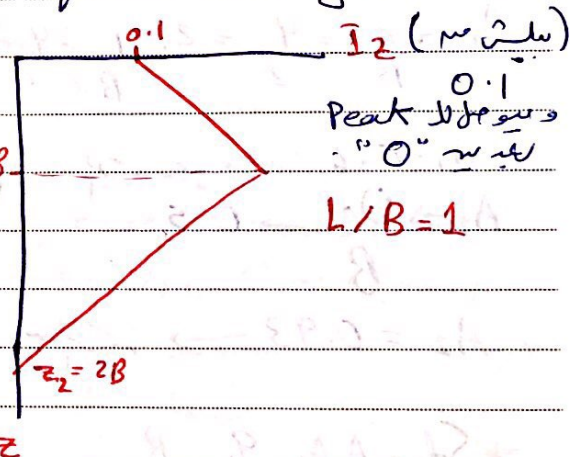 0.1
I₂ (بيلش من
0.1
وبيوصل لل Peak
بعدين "0".
B
L/B=1
z₂=2B
z